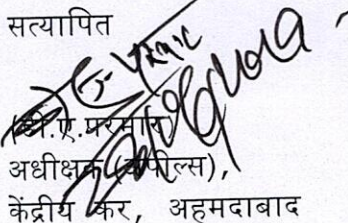 सत्यापित
(डी.ए.परमार)
अधीक्षक (अपील्स),
केंद्रीय कर, अहमदाबाद